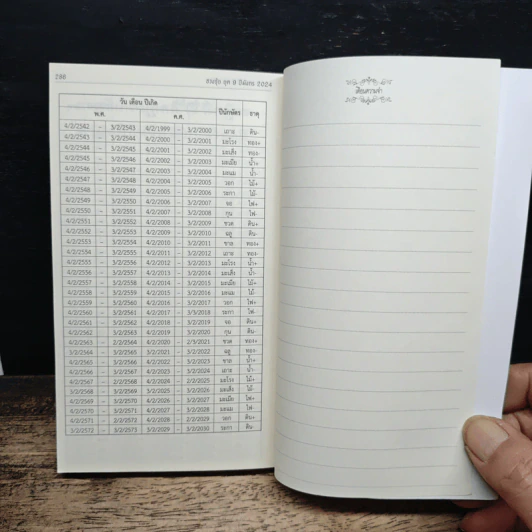 198
ฮวงจุ้ย ยุค 9 ปีมังกร 2024
วัน เดือน ปีเกิด ปีนักษัตร ธาตุ
พ.ศ. ค.ศ.
4/2/2542 – 3/2/2543 4/2/1999 – 3/2/2000 เถาะ ดิน-
4/2/2543 – 3/2/2544 4/2/2000 – 3/2/2001 มะโรง ทอง+
4/2/2544 – 3/2/2545 4/2/2001 – 3/2/2002 มะเส็ง ทอง-
4/2/2545 – 3/2/2546 4/2/2002 – 3/2/2003 มะเมีย น้ำ+
4/2/2546 – 3/2/2547 4/2/2003 – 3/2/2004 มะแม น้ำ-
4/2/2547 – 3/2/2548 4/2/2004 – 3/2/2005 วอก ไม้+
4/2/2548 – 3/2/2549 4/2/2005 – 3/2/2006 ระกา ไม้-
4/2/2549 – 3/2/2550 4/2/2006 – 3/2/2007 จอ ไฟ+
4/2/2550 – 3/2/2551 4/2/2007 – 3/2/2008 กุน ไฟ-
4/2/2551 – 3/2/2552 4/2/2008 – 3/2/2009 ชวด ดิน+
4/2/2552 – 3/2/2553 4/2/2009 – 3/2/2010 ฉลู ดิน-
4/2/2553 – 3/2/2554 4/2/2010 – 3/2/2011 ขาล ทอง+
4/2/2554 – 3/2/2555 4/2/2011 – 3/2/2012 เถาะ ทอง-
4/2/2555 – 3/2/2556 4/2/2012 – 3/2/2013 มะโรง น้ำ+
4/2/2556 – 3/2/2557 4/2/2013 – 3/2/2014 มะเส็ง น้ำ-
4/2/2557 – 3/2/2558 4/2/2014 – 3/2/2015 มะเมีย ไม้+
4/2/2558 – 3/2/2559 4/2/2015 – 3/2/2016 มะแม ไม้-
4/2/2559 – 3/2/2560 4/2/2016 – 3/2/2017 วอก ไฟ+
4/2/2560 – 3/2/2561 4/2/2017 – 3/2/2018 ระกา ไฟ-
4/2/2561 – 3/2/2562 4/2/2018 – 3/2/2019 จอ ดิน+
4/2/2562 – 3/2/2563 4/2/2019 – 3/2/2020 กุน ดิน-
4/2/2563 – 2/2/2564 4/2/2020 – 2/2/2021 ชวด ทอง+
3/2/2564 – 3/2/2565 3/2/2021 – 3/2/2022 ฉลู ทอง-
4/2/2565 – 3/2/2566 4/2/2022 – 3/2/2023 ขาล น้ำ+
4/2/2566 – 3/2/2567 4/2/2023 – 3/2/2024 เถาะ น้ำ-
4/2/2567 – 2/2/2568 4/2/2024 – 2/2/2025 มะโรง ไม้+
3/2/2568 – 3/2/2569 3/2/2025 – 3/2/2026 มะเส็ง ไม้-
4/2/2569 – 3/2/2570 4/2/2026 – 3/2/2027 มะเมีย ไฟ+
4/2/2570 – 3/2/2571 4/2/2027 – 3/2/2028 มะแม ไฟ-
4/2/2571 – 2/2/2572 4/2/2028 – 2/2/2029 วอก ดิน+
3/2/2572 – 3/2/2573 3/2/2029 – 3/2/2030 ระกา ดิน-
เตือนความจำ